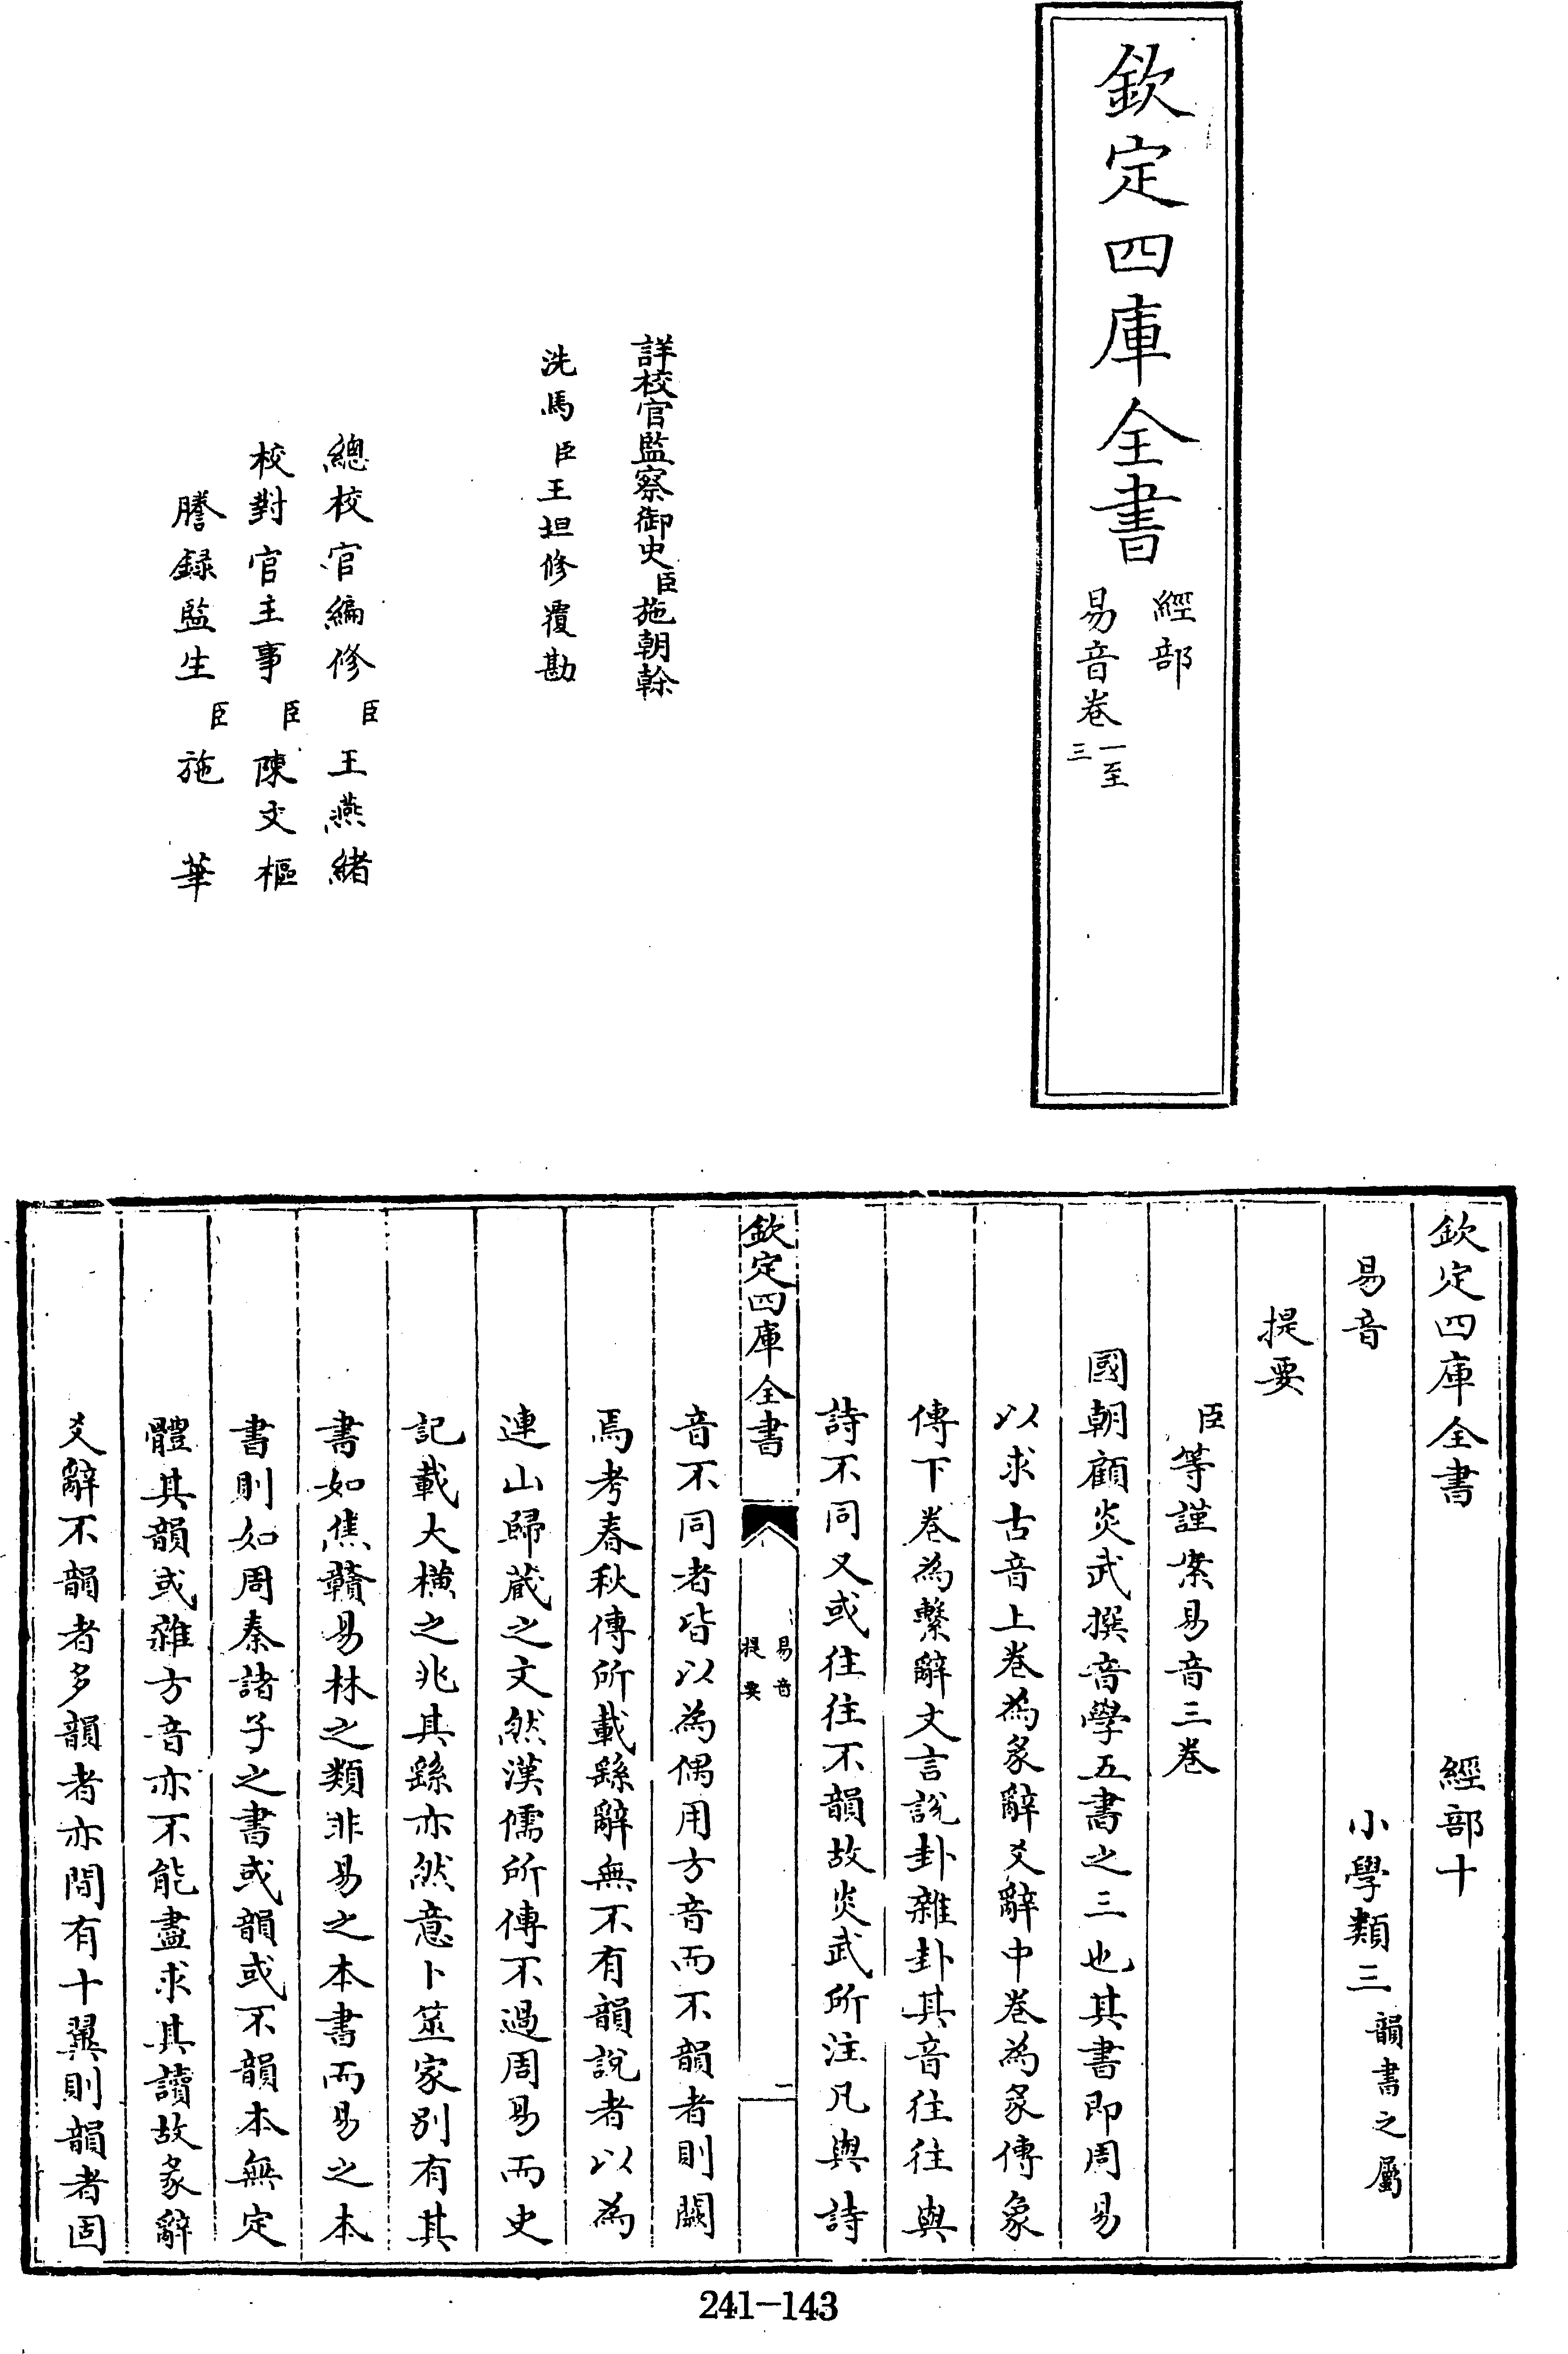 欽定四庫全書
經部
易音卷一至三
詳校官監察御史臣施朝榦
洗馬臣王坦修覆勘
總校官編修臣王燕緒
校對官主事臣陳文樞
謄録監生臣施華
欽定四庫全書 經部十
易音 小學類三韻書之屬
提要
臣等謹案易音三卷
國朝顧炎武撰音學五書之三也其書即周易
以求古音上卷為彖辭爻辭中卷為彖傳象
傳下卷為繫辭文言說卦雜卦其音往往與
詩不同又或往往不韻故炎武所注凡與詩
欽定四庫全書 易音提要 一
音不同者皆以為偶用方音而不韻者則闕
焉考春秋傳所載繇辭無不有韻說者以為
連山歸藏之文然漢儒所傳不過周易而史
記載大橫之兆其繇亦然意卜筮家別有其
書如焦贛易林之類非易之本書而易之本
書則如周秦諸子之書或韻或不韻本無定
體其韻或雜方音亦不能盡求其讀故彖辭
爻辭不韻者多韻者亦間有十翼則韻者固
241-143